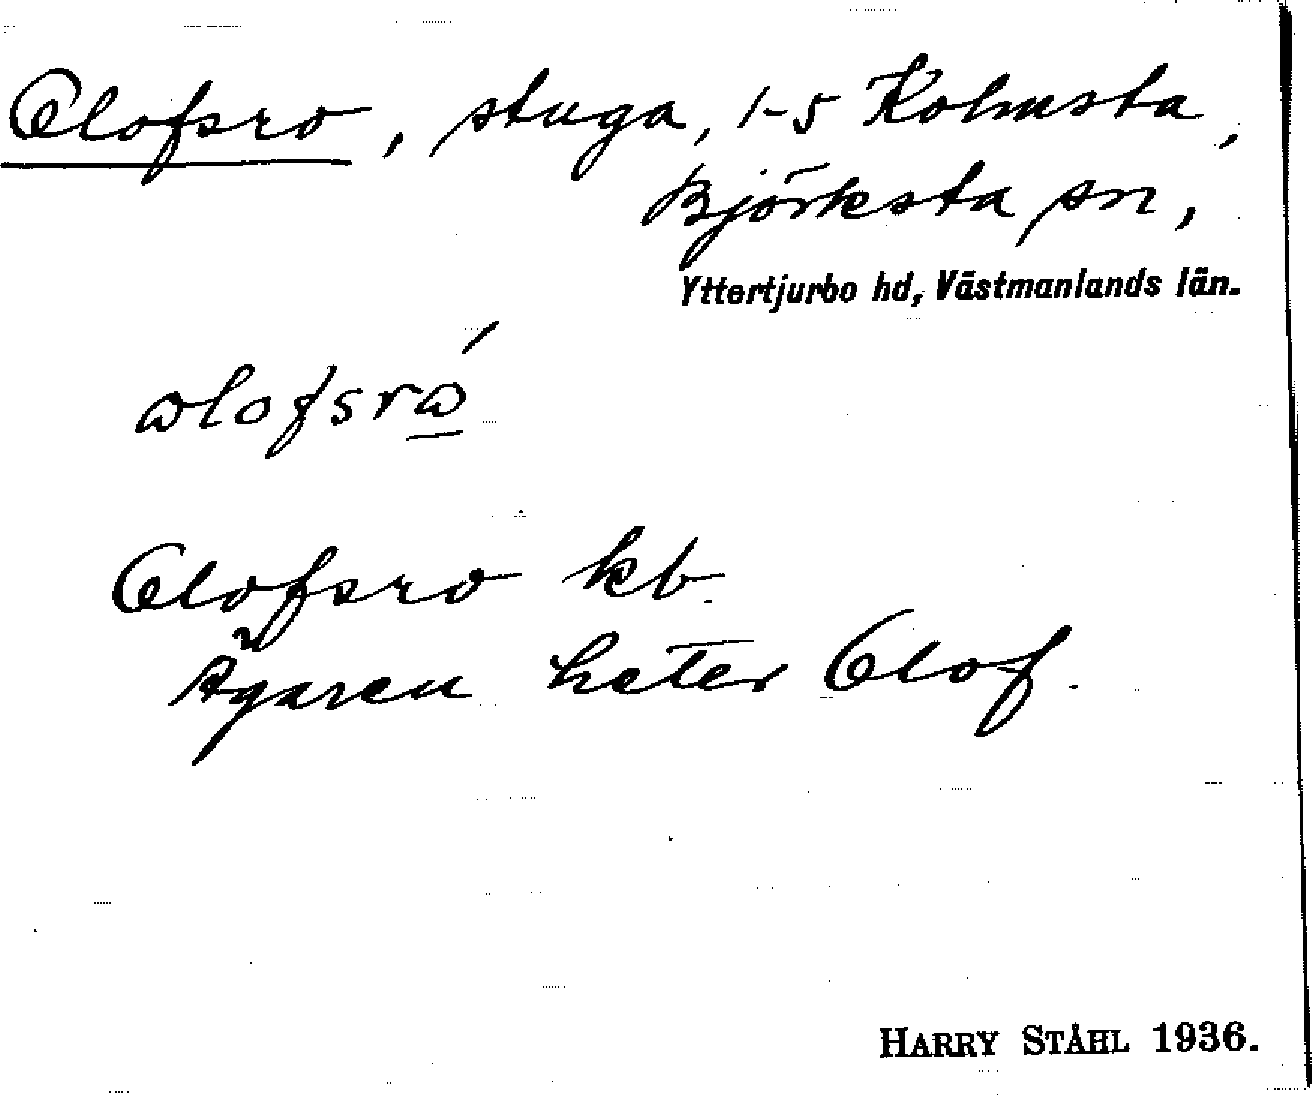 Olofsro, stuga, 1-5 Kolmsta,
Björksta sn,
Yttertjurbo hd, Västmanlands län.
ωlofsrώ̲
Olofsro kb.
Ägaren heter Olof.
HARRY STÅHL 1936.